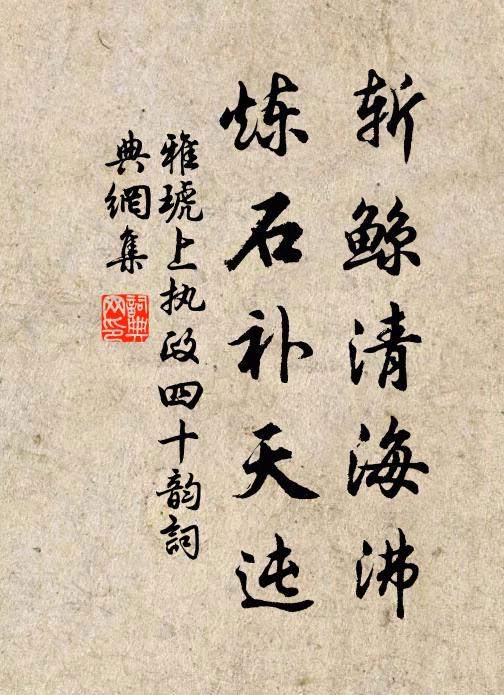 斩鲸清海沸
炼石补天迍
雅琥上执政四十韵詞
典網集
詞典
网印